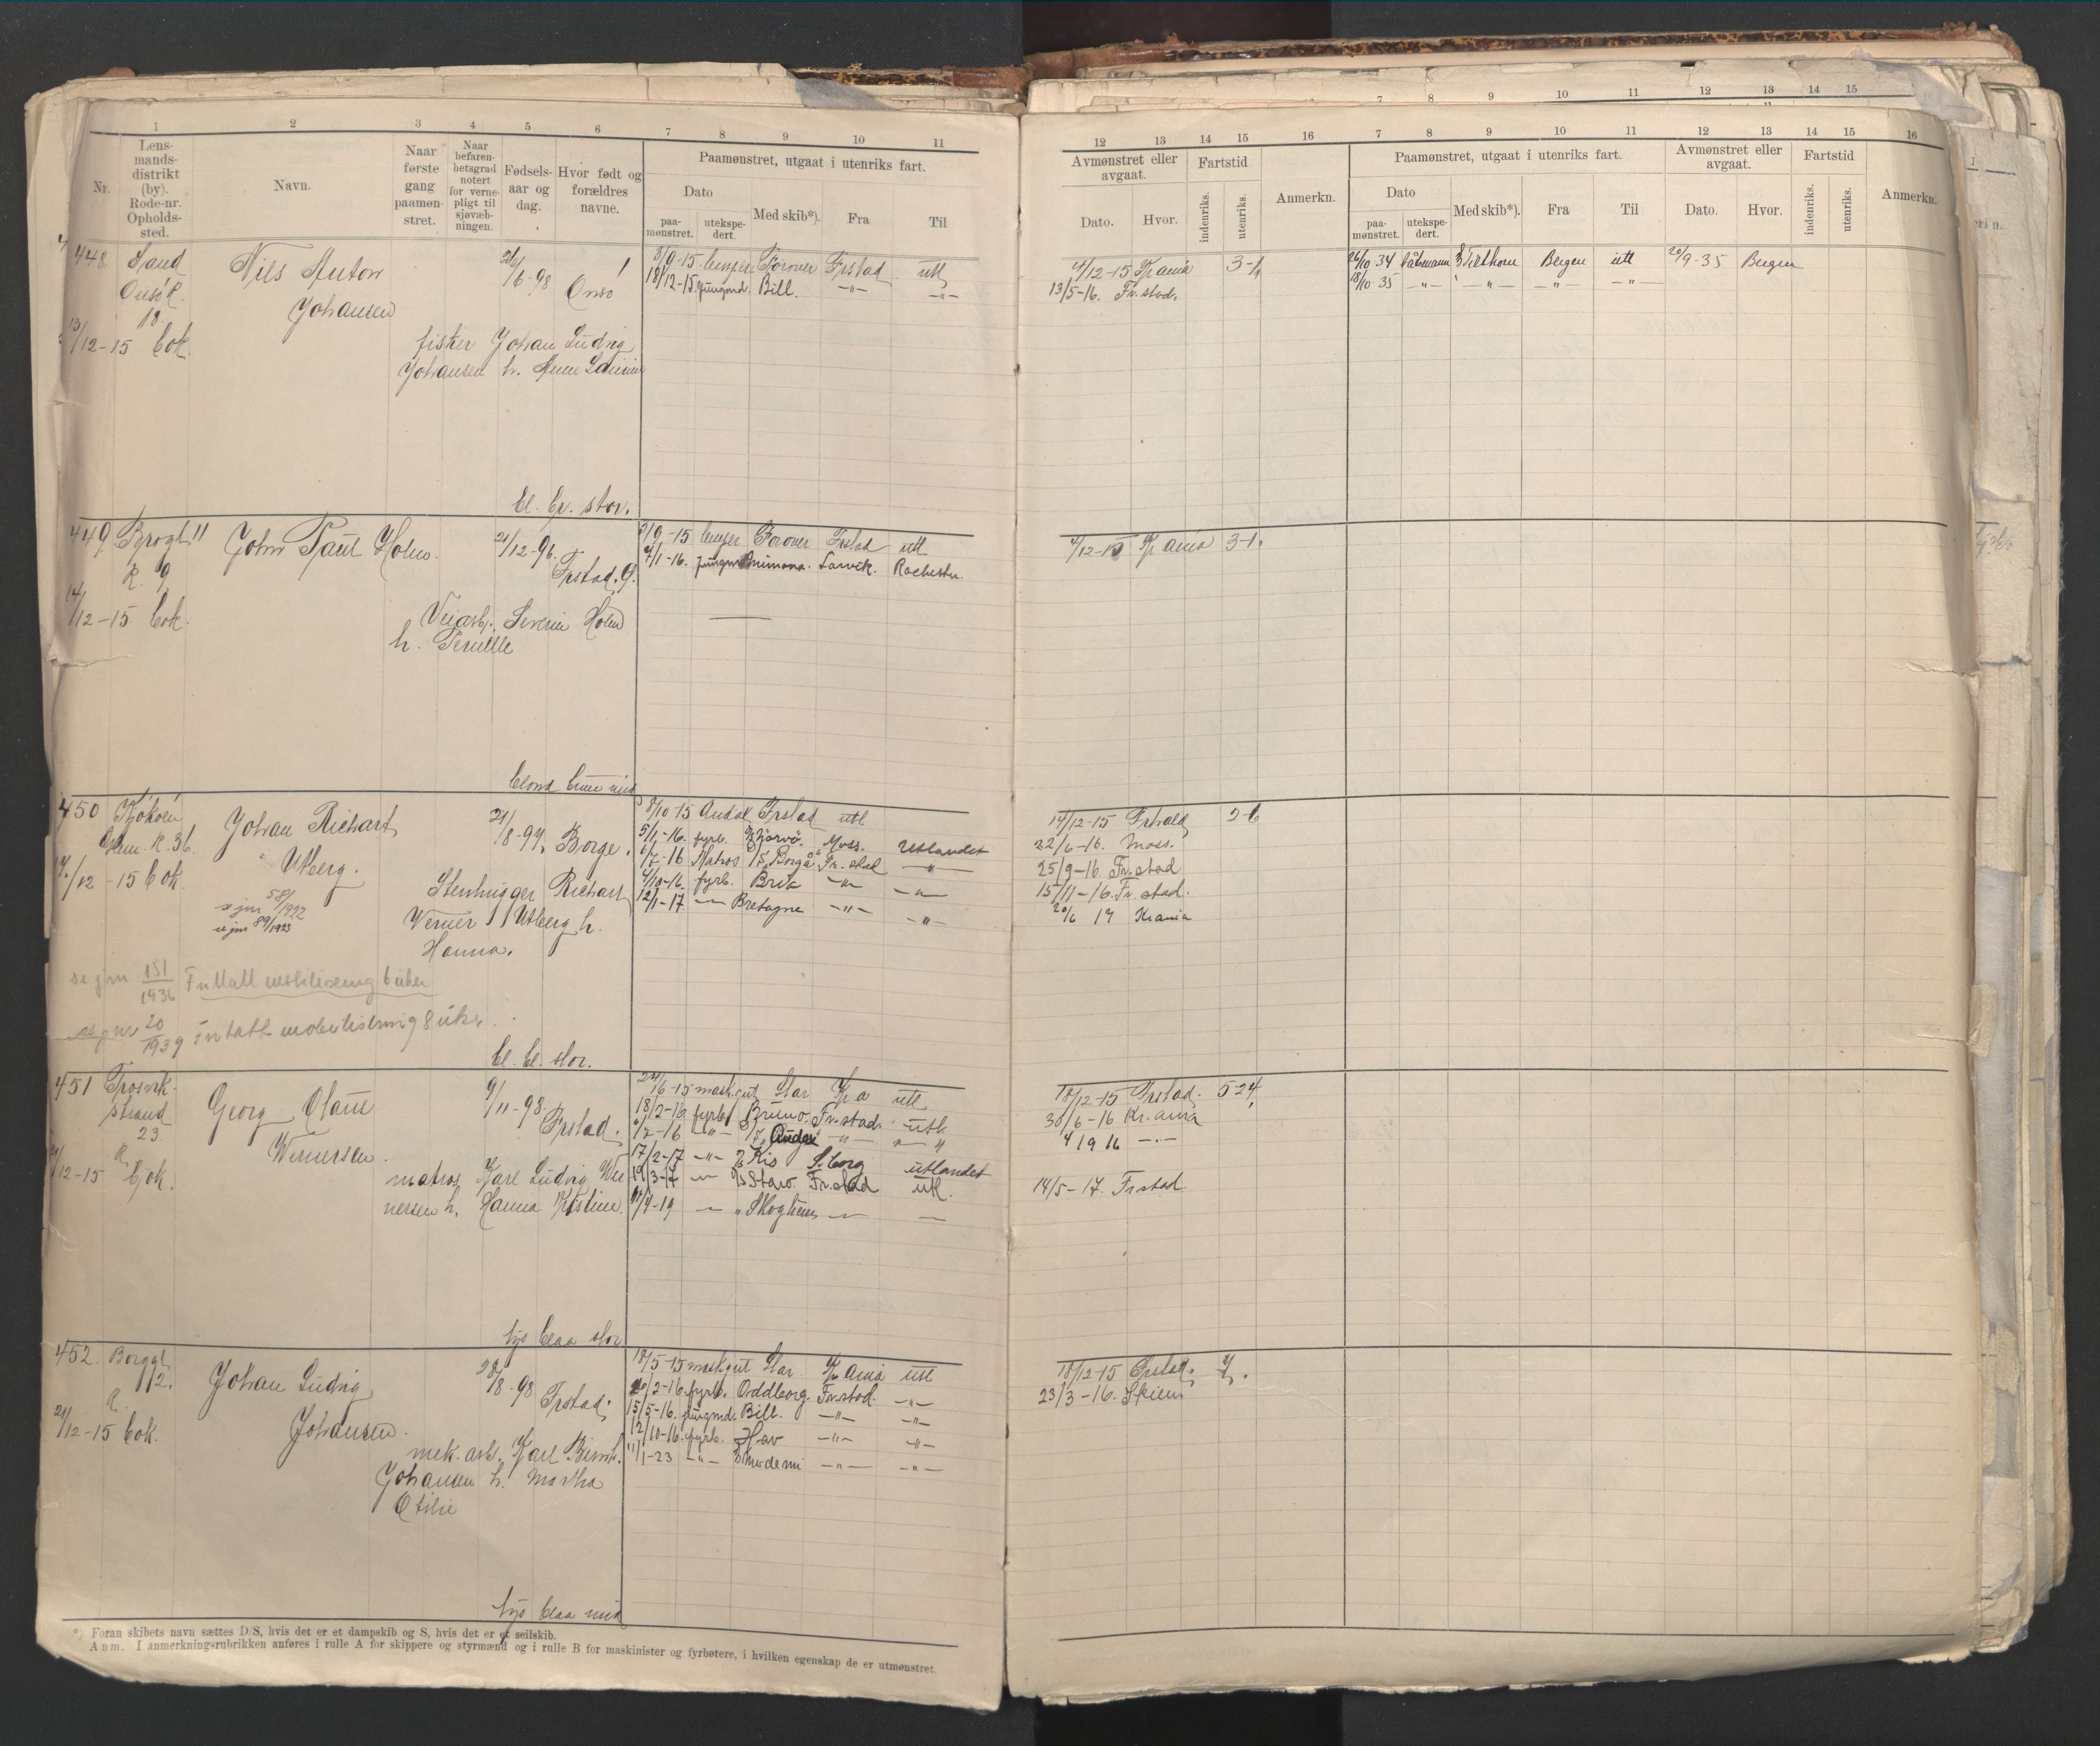 1 2 3 4 5 6 7 8 9 10 11
Nr.
Lens-
mands-
distrikt
(by).
Rode-nr.
Opholds-
sted.
Navn.
Naar
første
gang
paamøn-
stret.
Naar
befaren-
hetsgrad
notert
for verne-
pligt til
sjøvæb-
ningen.
Fødsels-
aar og
dag.
Hvor født og
forældres
navne.
Paamønstret, utgaat i utenriks fart.
Dato
paa-
mønstret.
utekspe-
dert.
Med skib*).
Fra
Til
448 Sand
Onsö R.
18.
13/12-15 Cok.
Nils Anton
Johansen
21/6-98 Onsö
fisker Johan Ludvig
Johansen h. Anne
3/9-15 Forover Frstad utl
18/12-15 jungmd. Bill. -"- -"-
El. br. stor.
449 11
R. 9
14/12-15 Cok.
John Paul Holm.
21/12-96. Frstad. G.
Severin Holm
h. Pernille
3/9-15 Forover Frstad utl
4/1-16. jungm Larvik. Rochester.
450 Kjökön
Glem. R. 36.
17/12-15 Cok.
Johan Richart
Utberg.
se jnr 58/1922
se jnr 89/1923
24/8-94. Borge.
Stenhugger Richart
Werner Utberg h.
Hanna.
se jnr 151/1936 Fritatt mobilisering 6 uker
se jnr 20/1939 Fritatt mobilisering 8 uker.
8/10-15 Frstad utl
5/1-16. fyrb. Moss. Utlandet
6/7-16 Matros Borgå Fr.stad -"-
4/10-16. fyrb. Brik -"- -"-
12/1-17 -"- Bretagne -"- -"-
bl. bl. stor.
451 Trosvik-
strand
23.
R
21/12-15 Cok.
Georg Olaus
Wernersen.
9/11-98. Frstad.
matros Karl Ludvig Wer
nersen h. Hanna Kristine.
24/6-15 mask.gut Star Kra utl
18/2-16 fyrb. Bruno. Fr.stad. utl.
6/7-16 -"- André -"- -"-
17/2-17 -"- Kis S.borg utlandet
19/3-17 -"- Staro. Fr.stad utl.
4-19 Skogheim
lys blaa stor
452. Borggt.
112.
R.
21/12-15 Cok.
Johan Ludvig
Johansen.
28/8-98 Frstad.
mek. arb. Karl
Johansen h. Martha
Otilie
18/5-15 maskgut Star Kr.ania utl
2-16. fyrb. Oddborg. Fr.stod. -"-
15/5-16. jungmd. Bill. -"- -"-
12/10-16. fyrb. Hav -"- -"-
11/1-23 -"- Modemi -"- -"-
lys blaa mid
*) Foran skibets navn sættes D/S, hvis det er et dampskib og S, hvis det er et seilskib.
Anm. I anmerkningsrubrikken anføres i rulle A for skippere og styrmænd og i rulle B for maskinister og fyrbøtere, i hvilken egenskap de er utmønstret.
12 13 14 15 16 7 8 9 10 11 12 13 14 15 16
Avmønstret eller
avgaat.
Dato.
Hvor.
Fartstid
indenriks.
utenriks.
Anmerkn.
Paamønstret, utgaat i utenriks fart.
Dato
paa-
mønstret.
utekspe-
dert.
Med skib*).
Fra
Til
Avmønstret eller
avgaat.
Dato.
Hvor.
Fartstid
indenriks.
utenriks.
Anmerkn.
4/12-15 Kr.ania 3-1.
13/5-16. Fr.stad.
26/10 34 Båtsmann Bergen utl 20/9-35 Bergen
18/10-35 -"- -"- -"- -"-
4/12-15 Kr.ania 3-1.
14/12-15 2-6
22/6-16. Moss.
25/9-16 Fr.stad
15/11-16. Fr.stad.
20/6 17 Kr.ania
18/12-15 Frstad. 5-24.
30/6-16 Kr.ania
4 19 16 -"-
14/5-17. Frstad.
18/12-15 Frstad. 7.
23/3-16. Skien
7 8 9 10 11 12 13 14 15